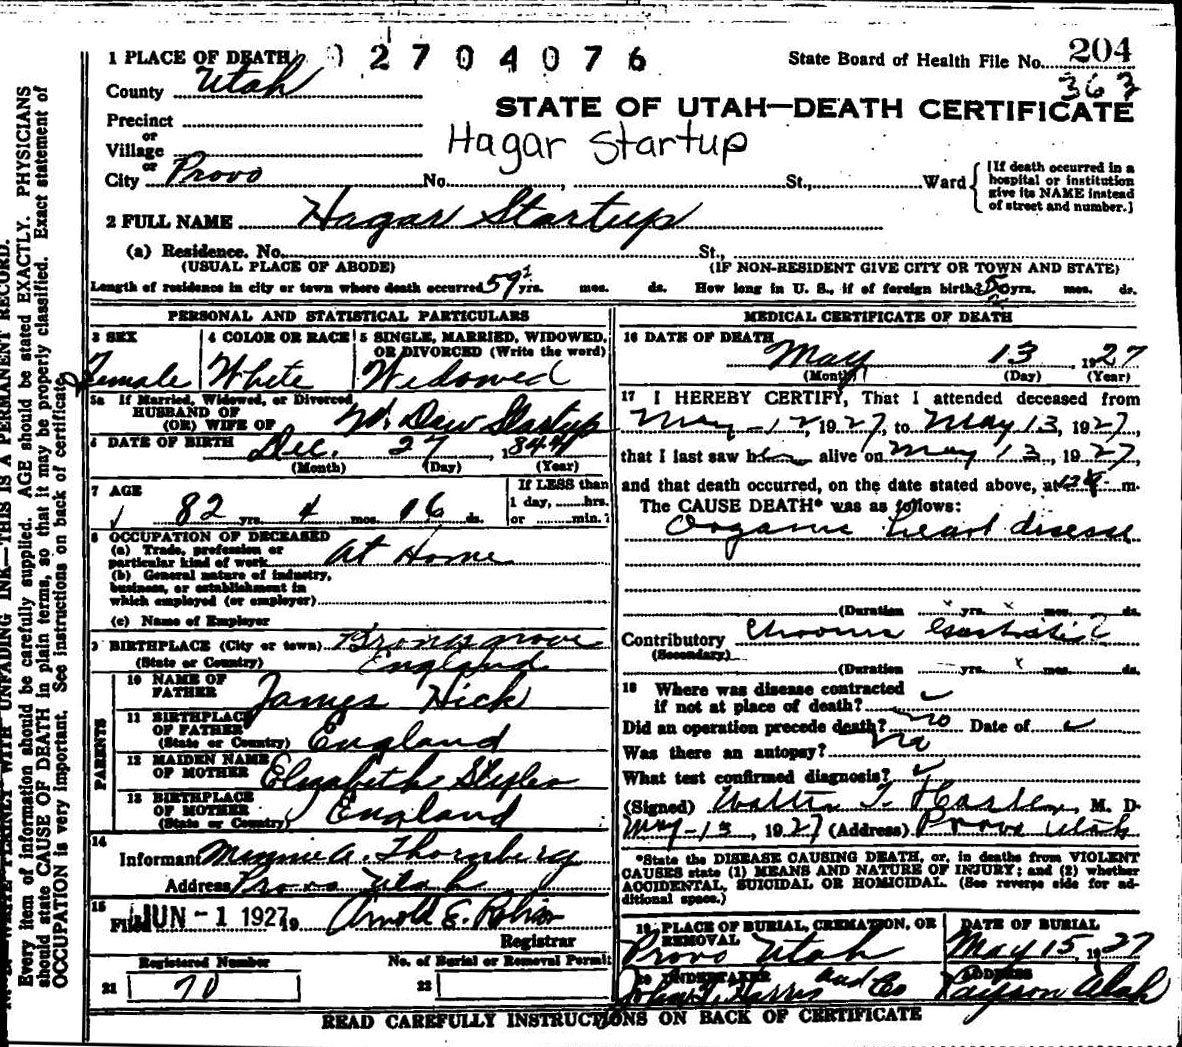 1 PLACE OF DEATH 02704076
State Board of Health File No. 204
363
County Utah
STATE OF UTAH—DEATH CERTIFICATE
Precinct
or
Village
Hagar Startup
or
City Provo No. , St., Ward
[If death occurred in a
hospital or institution
give its NAME instead
of street and number.]
2 FULL NAME Hagar Startup
(a) Residence. No. St.,
(USUAL PLACE OF ABODE) (IF NON-RESIDENT GIVE CITY OR TOWN AND STATE)
Length of residence in city or town where death occurred 59 yrs. mos. ds. How long in U. S., if of foreign birth? yrs. mos. ds.
PERSONAL AND STATISTICAL PARTICULARS
3 SEX
Female
4 COLOR OR RACE
White
5 SINGLE, MARRIED, WIDOWED,
OR DIVORCED (Write the word)
Widowed
5a If Married, Widowed, or Divorced
HUSBAND OF
(OR) WIFE OF Wm. Dew Startup
6 DATE OF BIRTH Dec. 27, 1844
(Month) (Day) (Year)
7 AGE
82 yrs. 4 mos. 16 ds.
If LESS than
1 day, hrs.
or min.?
8 OCCUPATION OF DECEASED
(a) Trade, profession or
particular kind of work At Home
(b) General nature of industry,
business, or establishment in
which employed (or employer)
(c) Name of Employer
9 BIRTHPLACE (City or town) Bromsgrove
(State or Country) England
PARENTS
10 NAME OF
FATHER James Hick
11 BIRTHPLACE
OF FATHER
(State or Country) England
12 MAIDEN NAME
OF MOTHER Elizabeth
13 BIRTHPLACE
OF MOTHER
(State or Country) England
14
Informant Minnie A. Thornberg
Address Provo Utah
15
Filed JUN - 1 1927, 19 Arnold E. Robison
Registrar
Registered Number
21 70
No. of Burial or Removal Permit
22
MEDICAL CERTIFICATE OF DEATH
16 DATE OF DEATH
May 13, 1927
(Month) (Day) (Year)
17 I HEREBY CERTIFY, That I attended deceased from
May - 12, 1927, to May 13, 1927,
that I last saw her alive on May 13, 1927,
and that death occurred, on the date stated above, at m.
The CAUSE DEATH* was as follows:
Organic heart disease
(Duration x yrs. x mos. ds.
Contributory Chronic
(Secondary)
(Duration yrs. x mos. ds.
18 Where was disease contracted
if not at place of death?
Did an operation precede death? no Date of
Was there an autopsy? no
What test confirmed diagnosis?
(Signed) Walter T. Hasler, M. D.
May - 13, 1927 (Address) Provo Utah
*State the DISEASE CAUSING DEATH, or, in deaths from VIOLENT
CAUSES state (1) MEANS AND NATURE OF INJURY; and (2) whether
ACCIDENTAL, SUICIDAL OR HOMICIDAL. (See reverse side for ad-
ditional space.)
19 PLACE OF BURIAL, CREMATION, OR
REMOVAL
Provo Utah
DATE OF BURIAL
May 15, 1927
20 UNDERTAKER
and Co
ADDRESS
Payson Utah
READ CAREFULLY INSTRUCTIONS ON BACK OF CERTIFICATE
N. B. WRITE PLAINLY WITH UNFADING INK—THIS IS A PERMANENT RECORD.
Every item of information should be carefully supplied. AGE should be stated EXACTLY. PHYSICIANS
should state CAUSE OF DEATH in plain terms, so that it may be properly classified. Exact statement of
OCCUPATION is very important. See instructions on back of certificate.